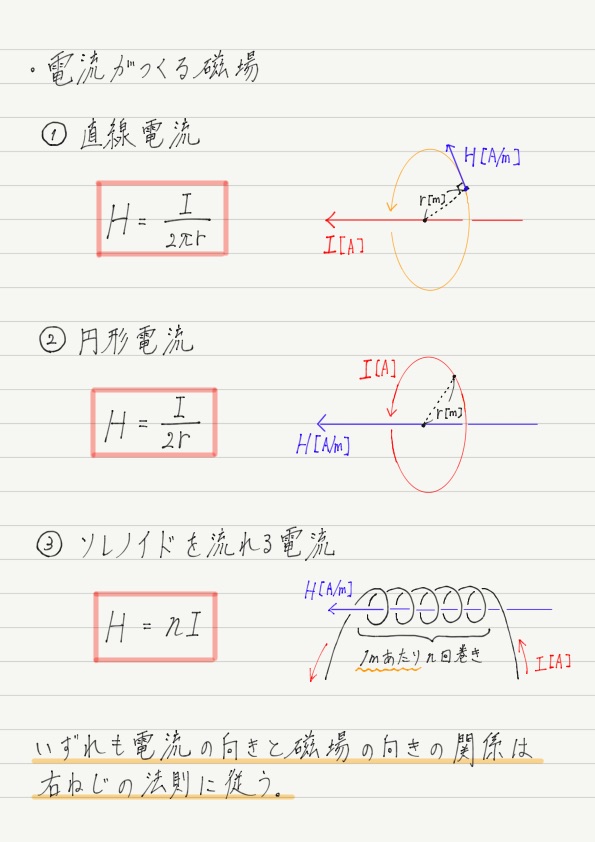 ・電流がつくる磁場
① 直線電流
H = I/2πr
H[A/m]
r[m]
I[A]
② 円形電流
H = I/2r
I[A]
r[m]
H[A/m]
③ ソレノイドを流れる電流
H = nI
H[A/m]
1mあたりn回巻き
I[A]
いずれも電流の向きと磁場の向きの関係は
右ねじの法則に従う。